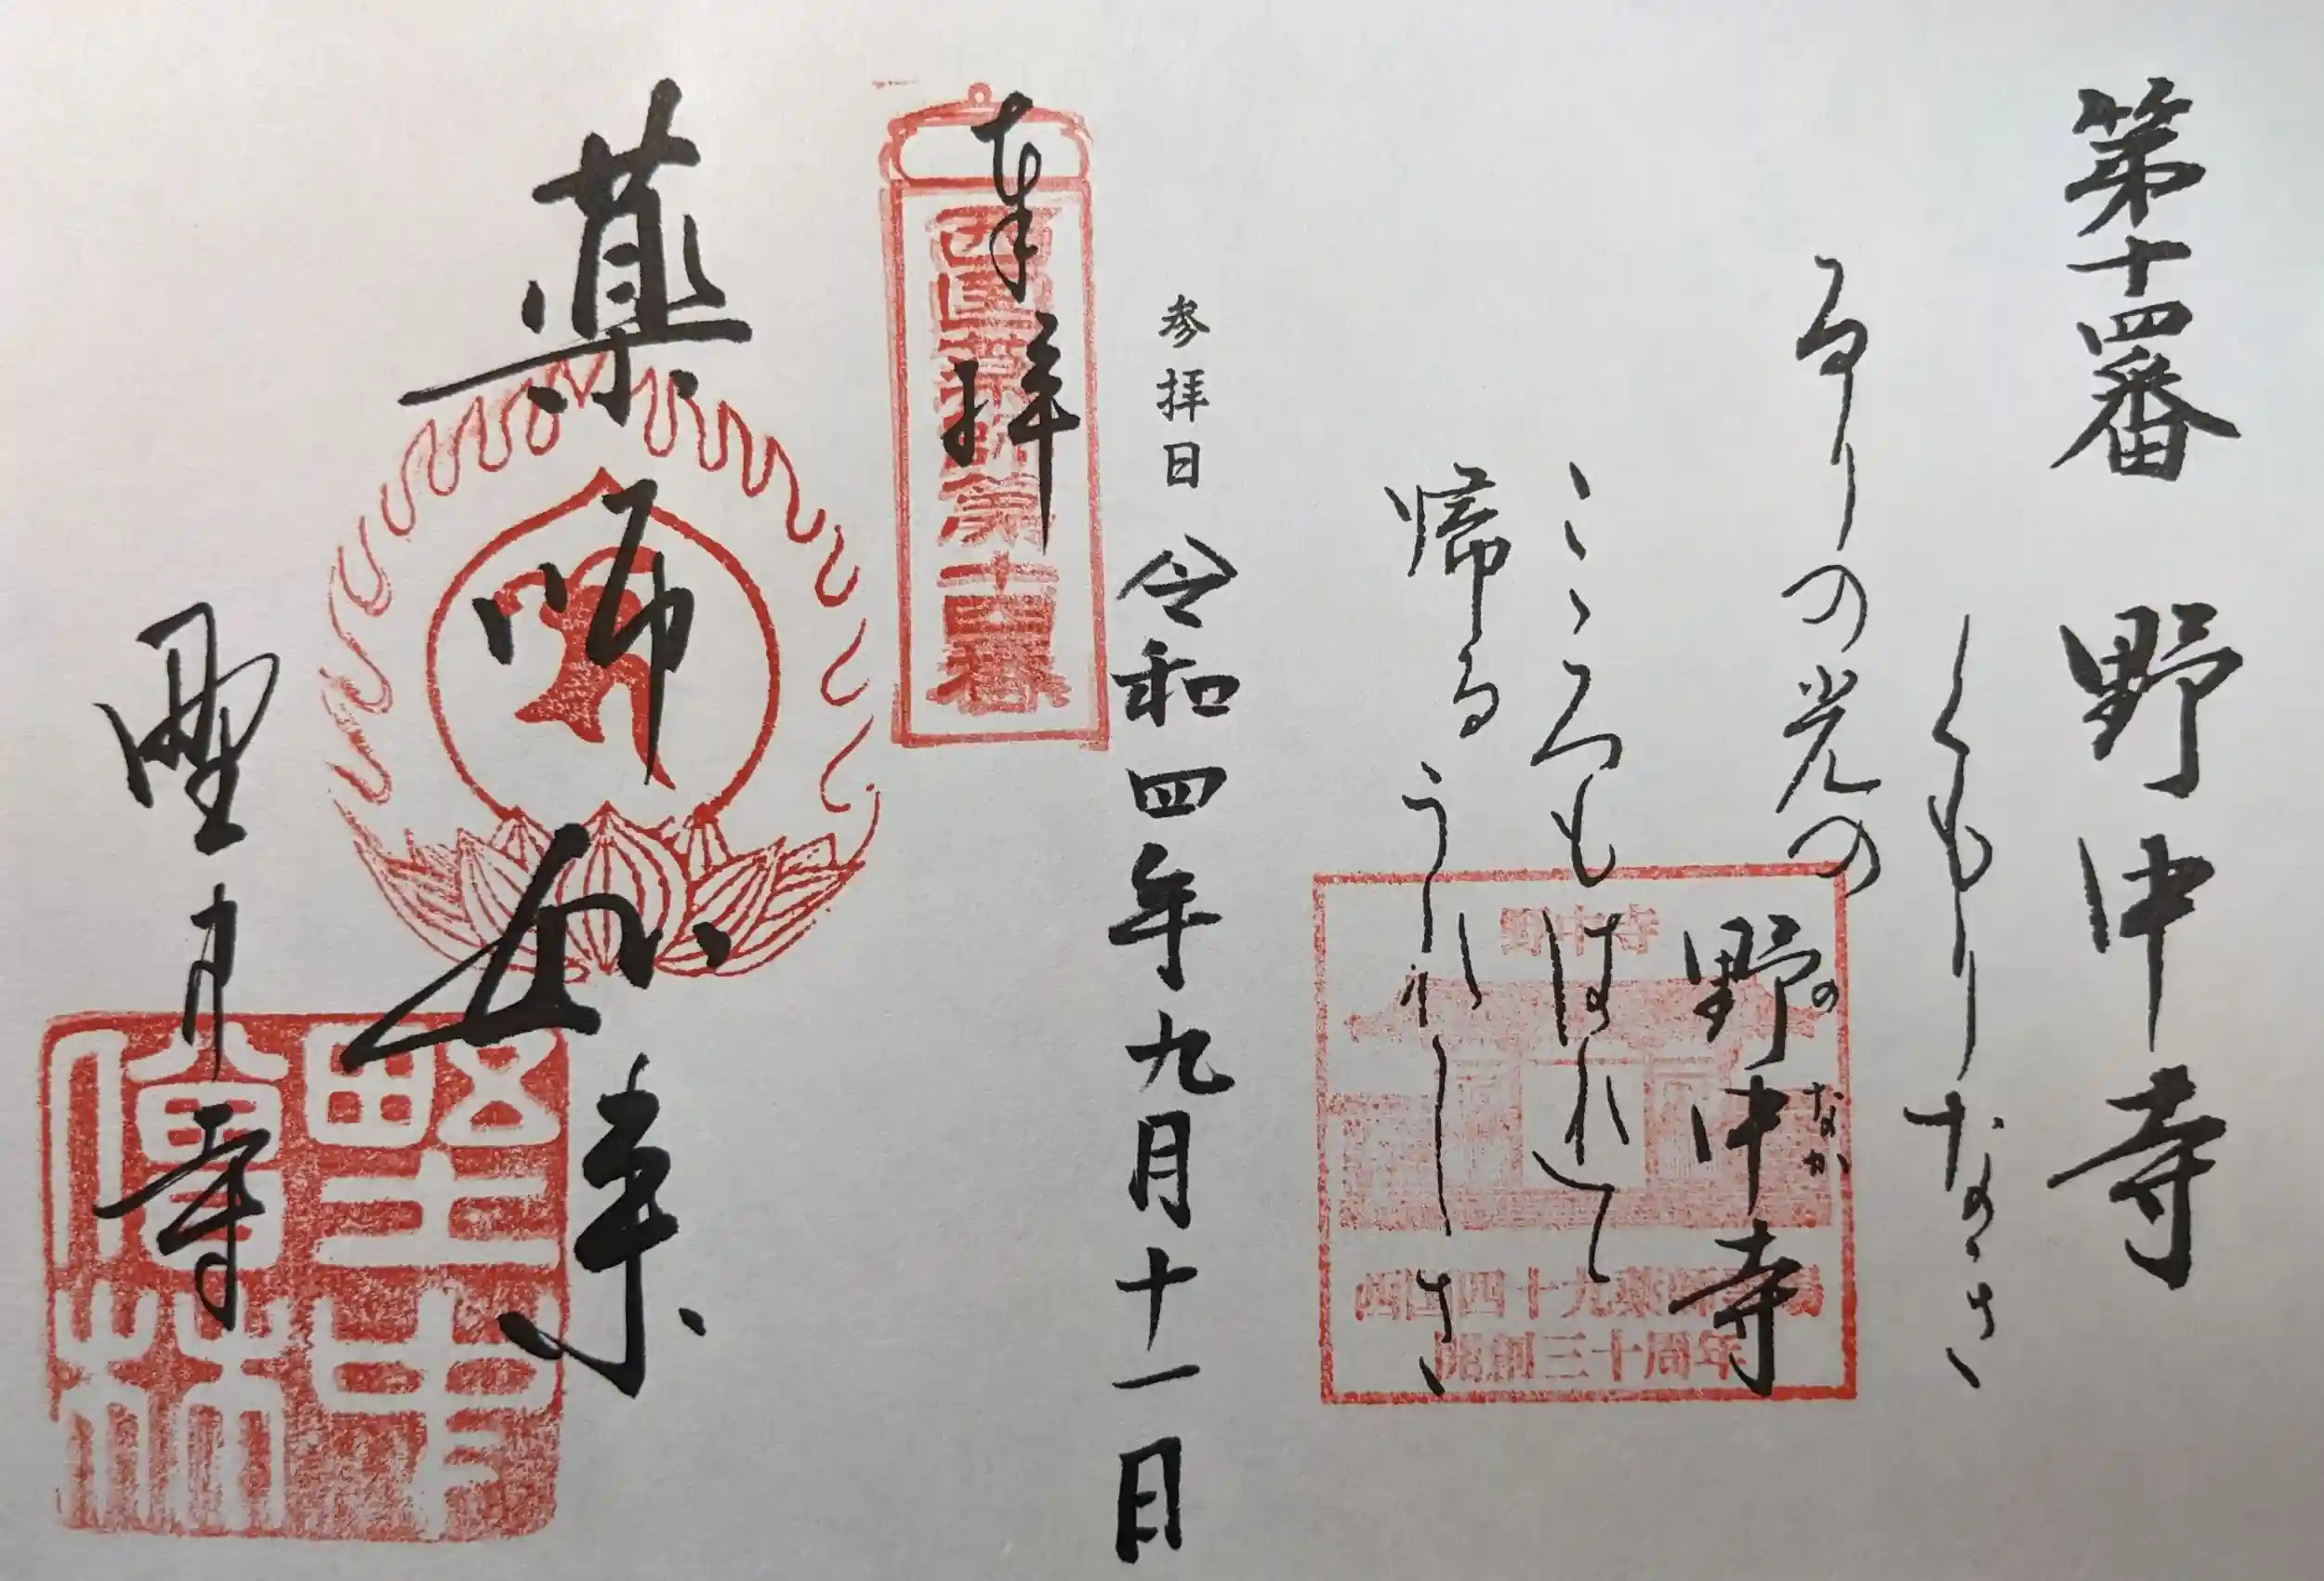 第十四番 野中寺
くもりなき
るりの光の
野中寺
のなか
こゝろもはれて
帰るうれしさ
野中寺
西国四十九薬師霊場
開創三十周年
参拝日 令和四年九月十一日
奉拝
西国薬師第十四番
薬師如来
野中寺